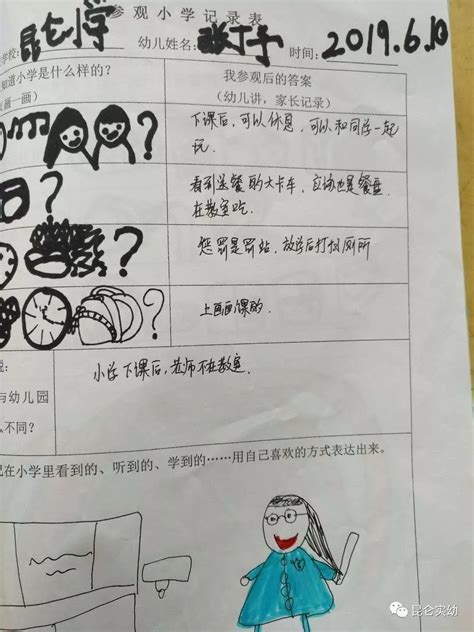 参观小学记录表
学校: 昆仑小学 幼儿姓名: 张丁予 时间: 2019.6.10
知道小学是什么样的?
画一画)
我参观后的答案
(幼儿讲,家长记录)
?
下课后,可以休息,可以和同学一起
玩.
?
看到送餐的大卡车,应该也是餐盘
在教室吃.
?
惩罚是罚站,放学后打扫厕所
?
上画画课的.
说:
与幼儿园
么不同?
小学下课后,老师不在教室.
在小学里看到的、听到的、学到的……用自己喜欢的方式表达出来。
昆仑实幼